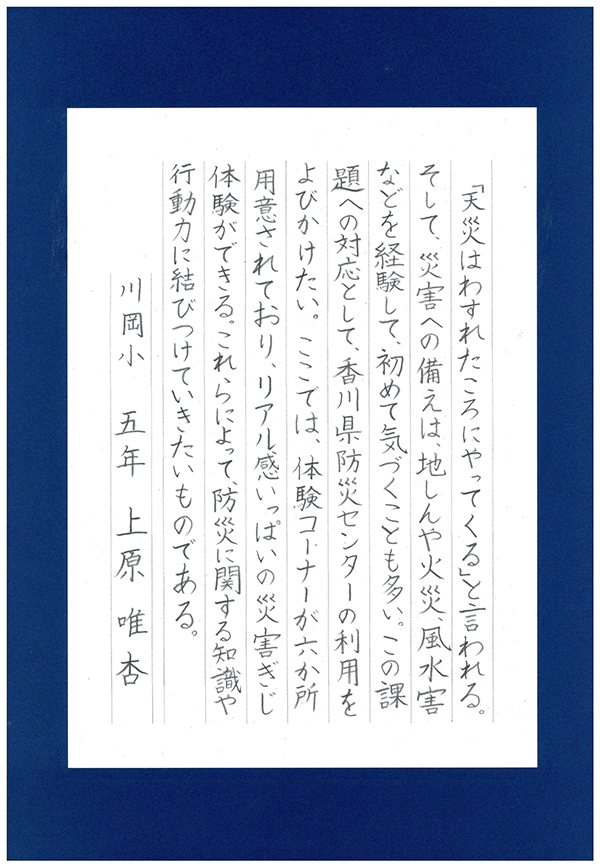 「天災はわすれたころにやってくる」と言われる。
そして、災害への備えは、地しんや火災、風水害
などを経験して、初めて気づくことも多い。この課
題への対応として、香川県防災センターの利用を
よびかけたい。ここでは、体験コーナーが六か所
用意されており、リアル感いっぱいの災害ぎじ
体験ができる。これらによって、防災に関する知識や
行動力に結びつけていきたいものである。
川岡小 五年 上原唯杏